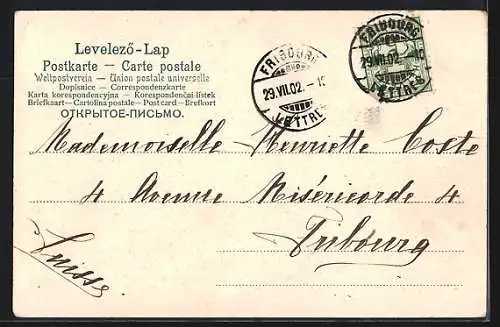 Levelező-Lap
Postkarte — Carte postale
Weltpostverein — Union postale universelle
Dopisnice — Correspondenzkarte
Karta korespondencyjna — Korespondenční lístek
Briefkaart — Cartolina postale — Post card — Brefkort
ОТКРЫТОЕ-ПИСЬМО.
FRIBOURG
29.VII.02.-1
LETTRES
FRIBOURG
29.VII.02
LETTRES
Mademoiselle Henriette Coste
4 Avenue Miséricorde 4
Fribourg
Suisse